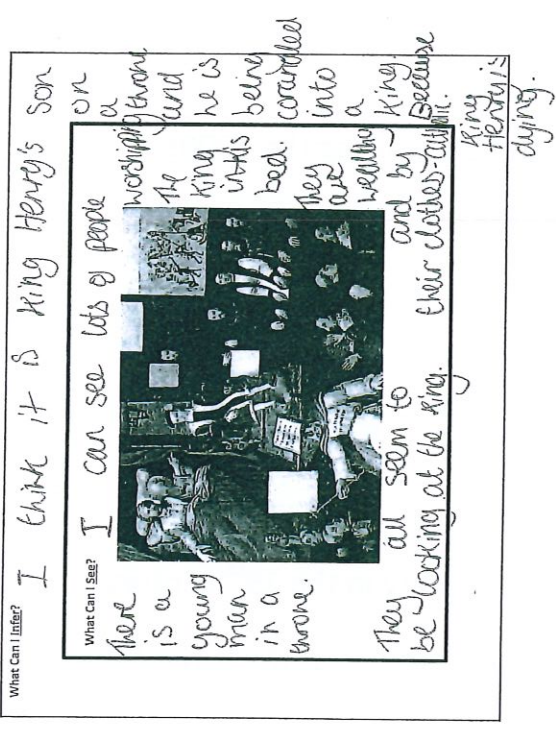 What Can I Infer?
I think it is King Henry's son
on
a
throne
and
he is
being
corandled
into
a
King.
Because
King
Henry is
dying.
What Can I See?
I can see lots of people
worshipping
The
King
in his
bed.
They
are
wealthy
and by
their clothes
There
is a
young
man
in a
throne.
They all seem to
be looking at the King.